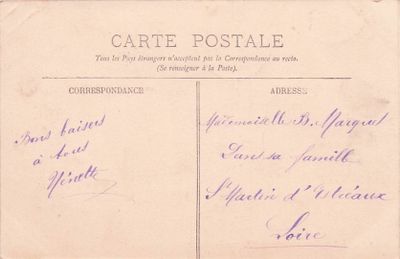 CARTE POSTALE
Tous les Pays étrangers n'acceptent pas la Correspondance au recto.
(Se renseigner à la Poste).
CORRESPONDANCE
Bons baisers
à tous
Nénette
ADRESSE
Mademoiselle B. Marquet
Dans sa famille
St Martin d'Estréaux
Loire